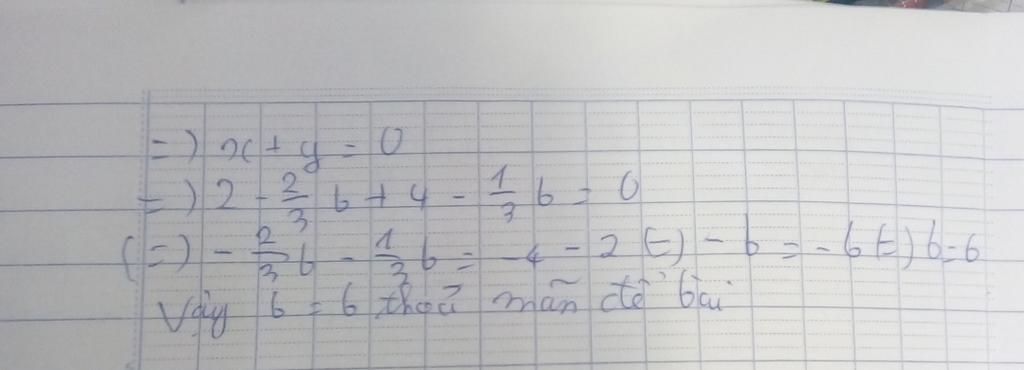 =) x + y = 0
=) 2 - 2/3 b + 4 - 1/3 b = 0
(=) - 2/3 b - 1/3 b = -4 - 2 (=) - b = - 6 (=) b = 6
Vậy b = 6 thoả mãn đề bài